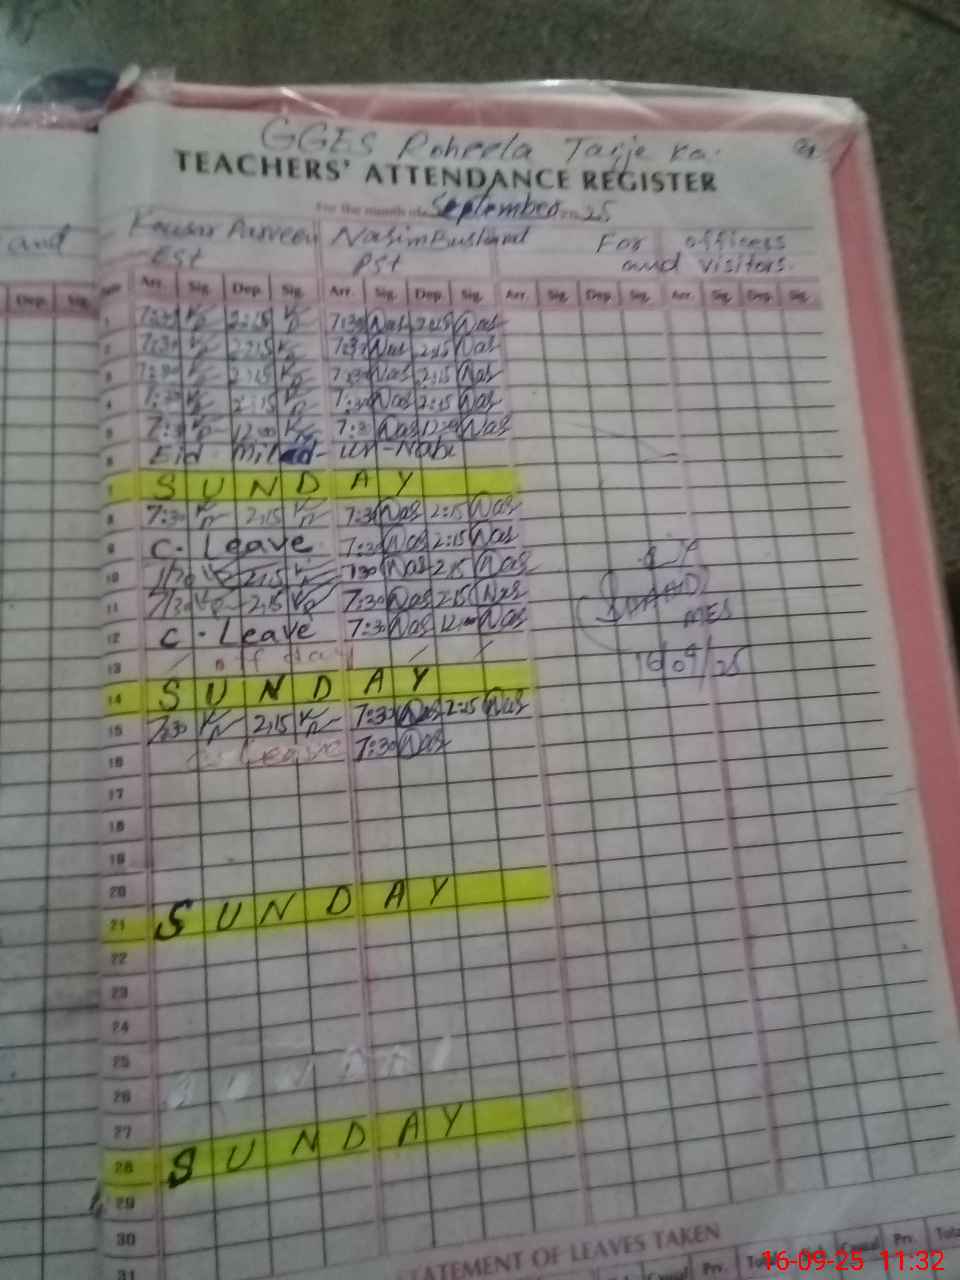 GGES Roheela Tarje Ka.
TEACHERS' ATTENDANCE REGISTER
For the month of September 25
and Kousar Parveen Nasim Bushand For offices
Est Pst and visitors.
Dep. Sig. Date Arr. Sig. Dep. Sig. Arr. Sig. Dep. Sig. Arr. Sig. Dep. Sig. Arr. Sig. Dep. Sig.
1 7:30 2:15 7:30 Nas 2:15 Nas
2 7:30 2:15 7:30 Nas 2:15 Nas
3 7:30 2:15 7:30 Nas 2:15 Nas
4 7:30 2:15 7:30 Nas 2:15 Nas
5 7:30 12:00 7:30 Nas 12:00 Nas
6 Eid Milad-un-Nabi
7 SUNDAY
8 7:30 2:15 7:30 Nas 2:15 Nas
9 C. Leave 7:30 Nas 2:15 Nas
10 7:30 2:15 7:30 Nas 2:15 Nas
11 7:30 2:15 7:30 Nas 2:15 Nas
12 C. Leave 7:30 Nas 12:00 Nas
13 off day
14 SUNDAY
15 7:30 2:15 7:30 Nas 2:15 Nas
16 Leave 7:30 Nas
MES
16/09/25
17
18
19
20
21 SUNDAY
22
23
24
25
26
27
28 SUNDAY
29
30
31
STATEMENT OF LEAVES TAKEN
Prv. Total Casual Prv. Total
16-09-25 11:32